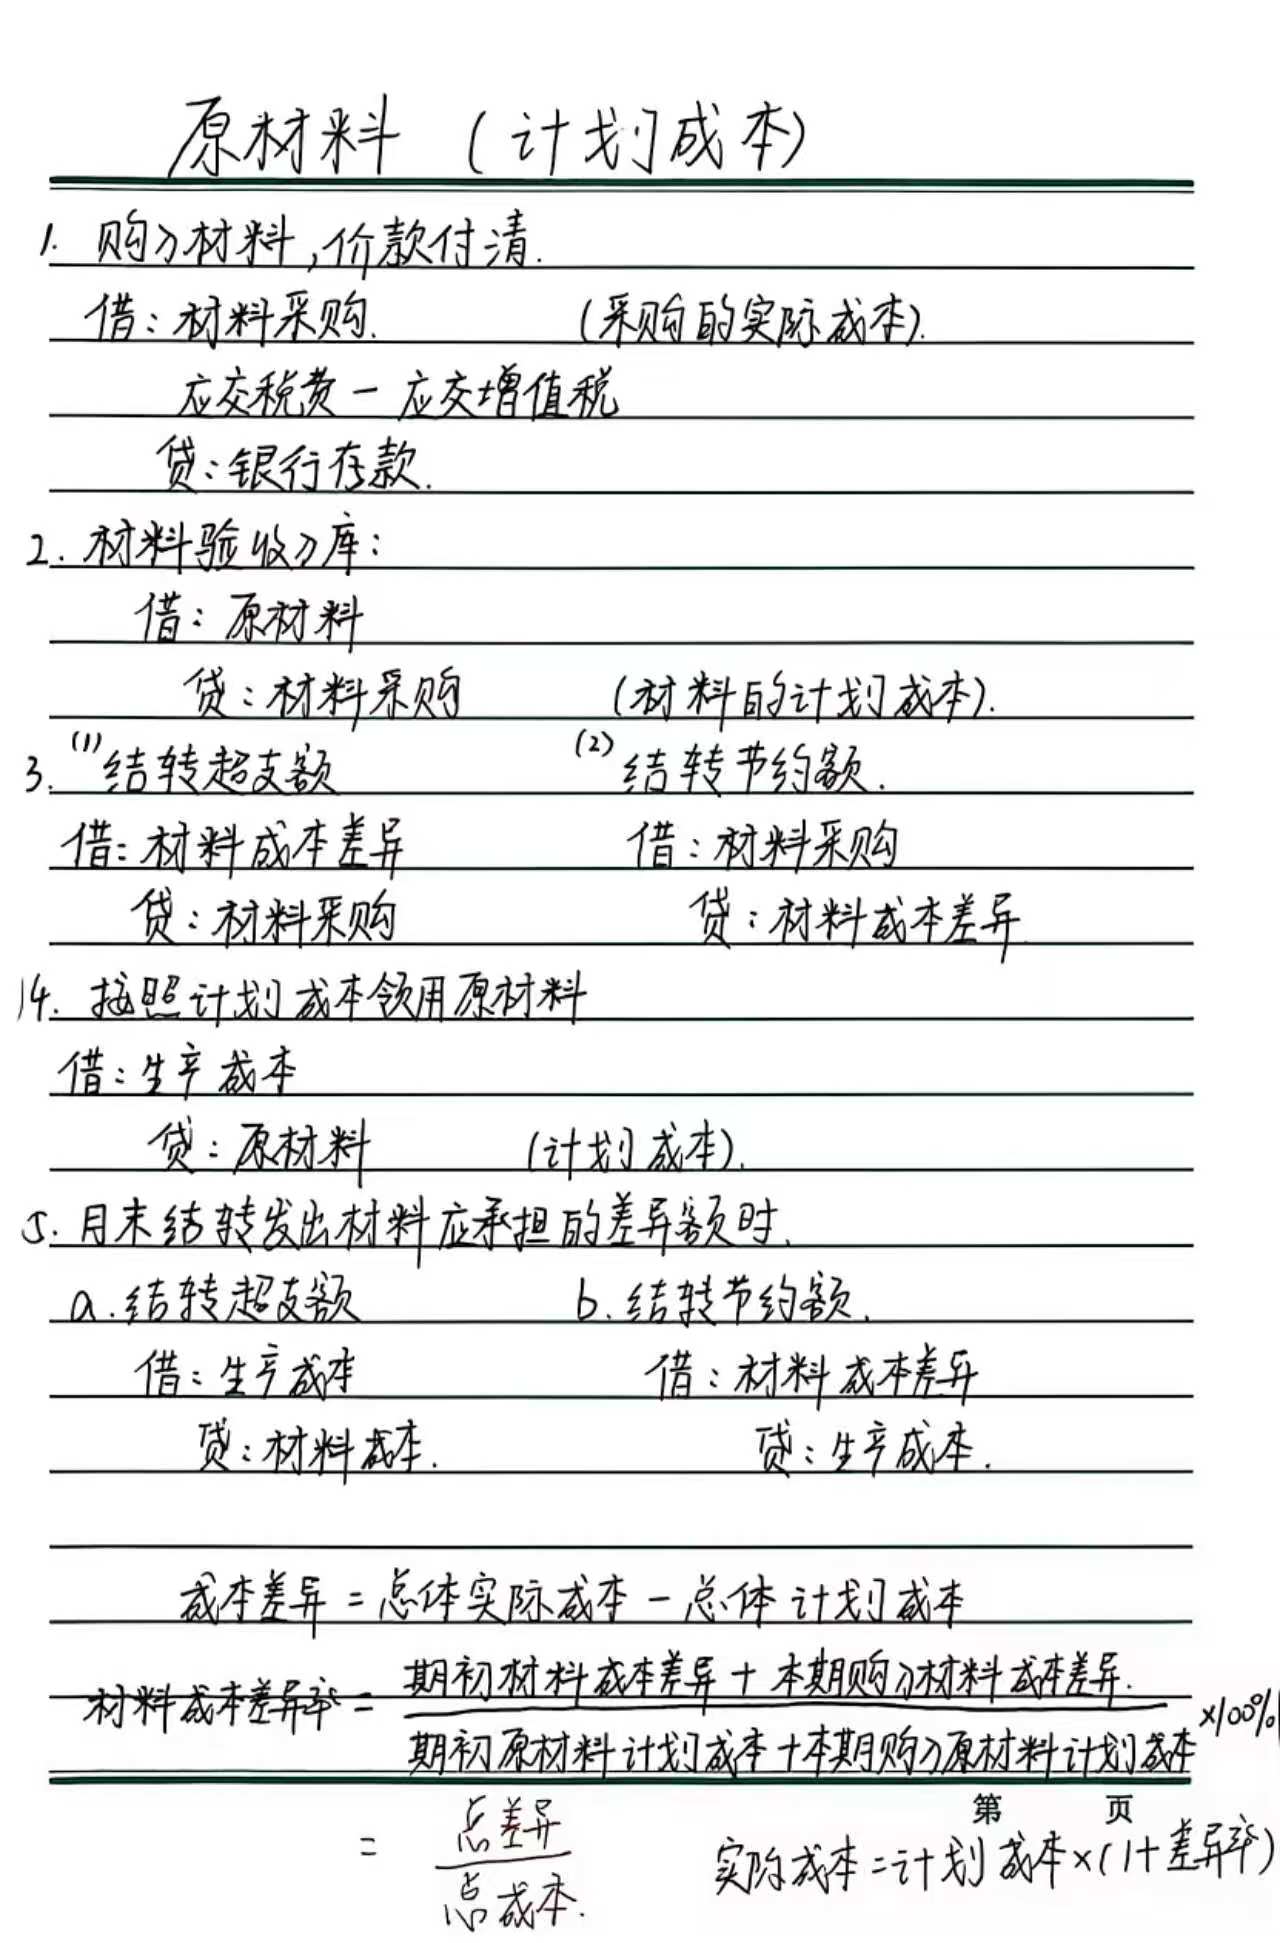 原材料 (计划成本)
1. 购入材料,价款付清.
借:材料采购. (采购的实际成本).
应交税费-应交增值税
贷:银行存款.
2. 材料验收入库:
借:原材料
贷:材料采购 (材料的计划成本).
3. (1)结转超支额 (2)结转节约额.
借:材料成本差异 借:材料采购
贷:材料采购 贷:材料成本差异
4. 按照计划成本领用原材料
借:生产成本
贷:原材料 (计划成本).
5. 月末结转发出材料应承担的差异额时.
a.结转超支额 b.结转节约额.
借:生产成本 借:材料成本差异
贷:材料成本. 贷:生产成本.
成本差异=总体实际成本-总体计划成本
材料成本差异率= 期初材料成本差异+本期购入材料成本差异.
期初原材料计划成本+本期购入原材料计划成本 ×100%
第 页
= 总差异
总成本.
实际成本=计划成本×(1+差异率)